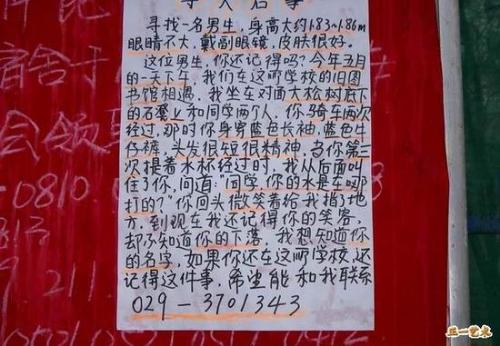 寻人启事
寻找一名男生,身高大约1.83~1.86m
眼睛不大,戴副眼镜,皮肤很好。
这位男生,你还记得吗?今年五月
的一天下午,我们在这所学校的旧图
书馆相遇,我坐在对面大松树底下
的石凳上和同学两个人,你骑车两次
经过,那时你身穿蓝色长袖,蓝色牛
仔裤,头发很短很精神,当你第三
次提着水杯经过时,我从后面叫
住了你,问道:"同学,你的水是在哪
打的?"你回头微笑着给我指了地
方,到现在我还记得你的笑容,
却不知道你的下落,我想知道你
的名字,如果你还在这所学校,还
记得这件事,希望能和我联系
029-3701343
宿舍于
会领
0810
211
正一艺术